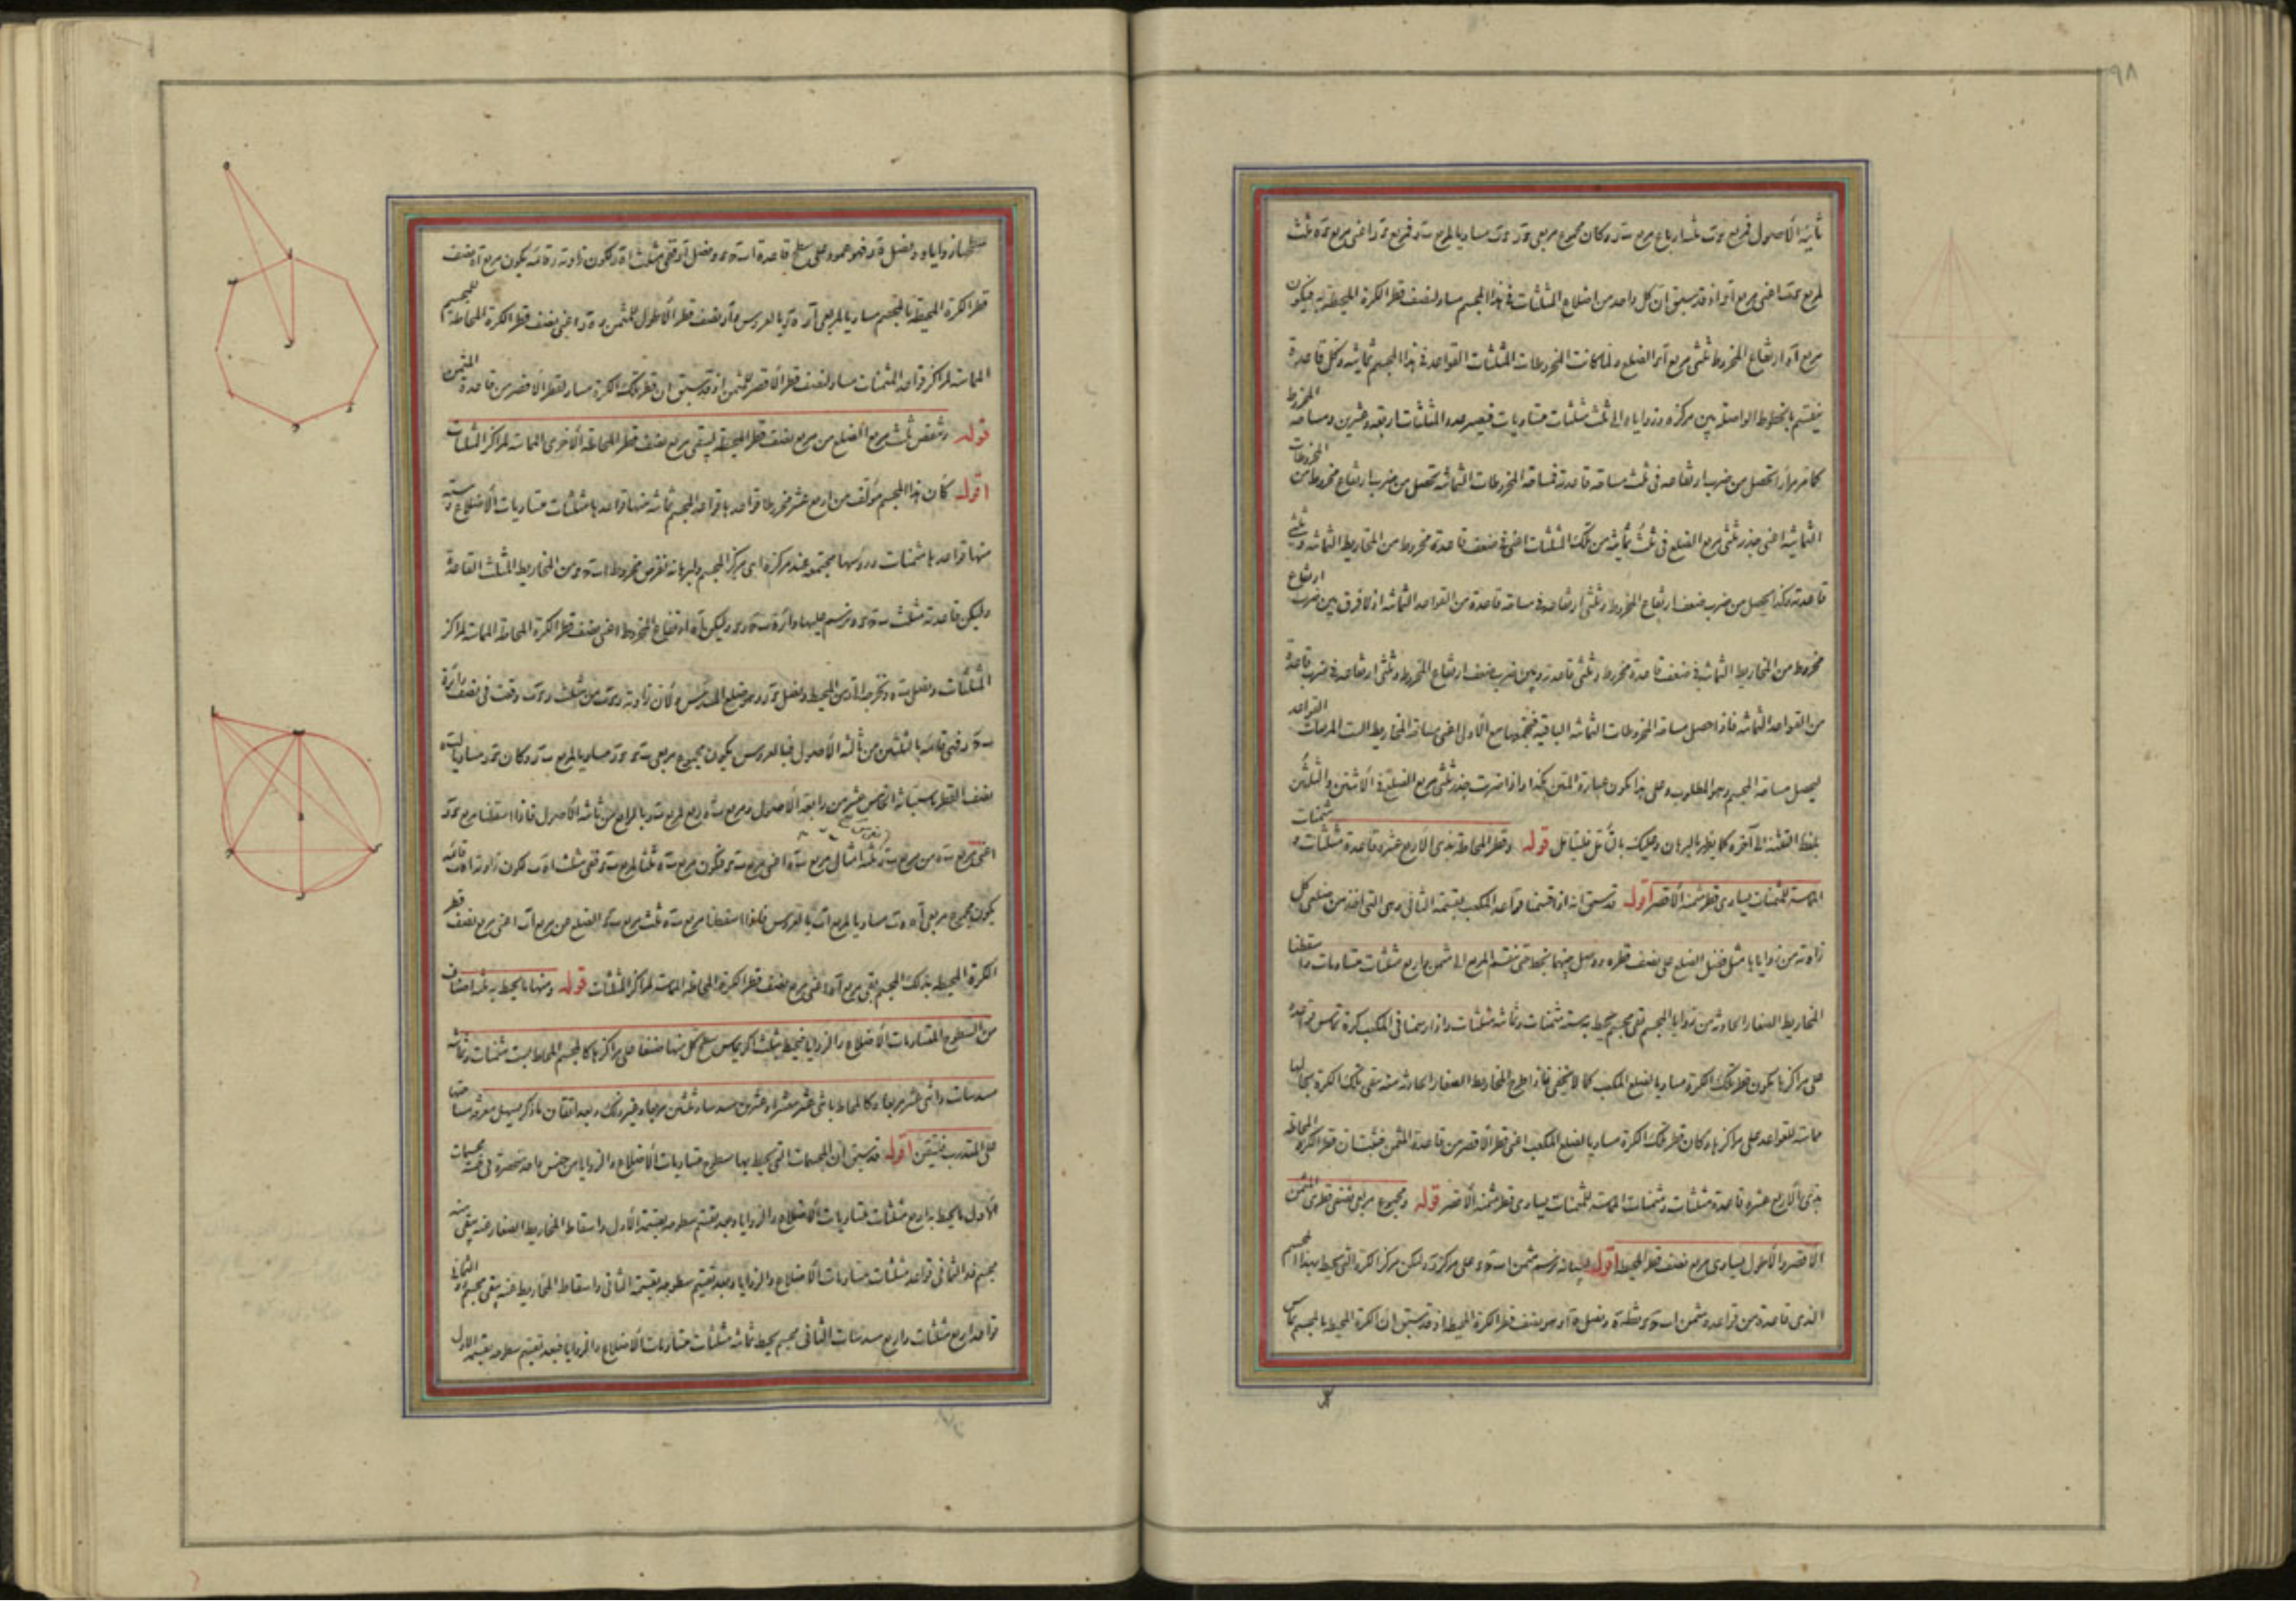 ٩٨
ثانية الأصول فمربع ء ب ثلثة ارباع مربع ب ر وكان مجموع مربعي ء ر ء ب مساويا لمربع ب ر فمربع ء ر اعني مربع ء ه ثلث
لمربع اعني مربع اذ قد سبق ان كل واحد من اضلاع المثلثات في هذا المجسم مساو لنصف قطر الكرة المحيطة به فيكون
مربع ا ه ارتفاع المخروط ثلثي مربع الضلع ولما كانت المخروطات المثلثات القواعد في هذا المجسم ثمانية وكل قاعدة
ينقسم بالخطوط الواصلة بين مركزه وزوايا والى ثلث مثلثات متساويات فيصير عدد المثلثات اربعة وعشرين ومساحة المخروط
كما مر مرارا تحصل من ضرب ارتفاعه في ثلث مساحة قاعدته فمساحة المخروطات الثمانية تحصل من ضرب ارتفاع مخروط من المخروطات
الثمانية اعني جذر ثلثي مربع الضلع في ثلث ثمانية من تلك المثلثات اعني في ضعف قاعدة مخروط من المخاريط الثمانية وثلثي
قاعدته وكذا يحصل من ضرب ضعف ارتفاع المخروط وثلثي ارتفاعه في مساحة قاعدة من القواعد الثمانية اذ لا فرق بين ضرب ارتفاع
مخروط من المخاريط الثمانية في ضعف قاعدة مخروط وثلثي قاعدته وبين ضرب ضعف ارتفاع المخروط وثلثي ارتفاعه في ضرب قاعدة
من القواعد الثمانية فاذا حصل مساحة المخروطات الثمانية الباقية فنجمعها مع الاول اعني مساحة المخاريط الست المربعات القواعد
ليحصل مساحة المجسم وهو المطلوب وعلى هذا يكون عبارة المتن هكذا واذا ضربت جذر ثلثي مربع الضلع في الاثنين والثلثين
بلفظ التثنية الى آخره كما يظهر بالبرهان وعليك بالتأمل فليتأمل قوله وقطر المحاطة بذي الأربع عشرة قاعدة مثلثات و مثمنات
المماسة للمثمنات يساوي قطر مثمنه الأقصر اقول قد سبق انه اذا قسمنا قواعد المكعب بقسمة الثاني وهي التي اخذ من ضلعي كل
زاوية من زواياها مثل فضل الضلع على نصف قطره ووصل بينهما بخط حتى ينقسم المربع الى مثمن واربع مثلثات متساويات واسقطنا
المخاريط الصغار الحادثة من زوايا المجسم بقي مجسم يحيط به ستة مثمنات وثمانية مثلثات واذا رسمنا في المكعب كرة تماس قواعده
على مراكزها يكون قطر تلك الكرة مساويا لضلع المكعب كما لا يخفى فاذا طرح المخاريط الصغار الحادثة منه بقي تلك الكرة بحالها
مماسة للقواعد على مراكزها وكان قطر تلك الكرة مساويا لضلع المكعب اعني قطر الأقصر من قاعدة المثمن فثبت ان قطر الكرة المحاطة
بذي الأربع عشرة قاعدة مثلثات ومثمنات المماسة للمثمنات يساوي قطر مثمنه الأقصر قوله ومجموع مربعي نصفي قطري المثمن
الأقصر والأطول يساوي مربع نصف قطر المحيطة اقول فبيانه نرسم مثمن ا ب ج ء على مركز ر وليكن مركز الكرة التي يحيط بهذا المجسم
الذي قاعدة من قواعده مثمن ا ب ج ء نقطة ه ونصل ه ا وهو نصف قطر الكرة المحيطة اذ قد سبق ان الكرة المحيطة بالمجسم تماس
زواياه ونصل ه ر فهو عمود على سطح قاعدة ا ب ج ء ونصل ا ر ففي مثلث ا ه ر يكون زاوية ر قائمة يكون مربع ا ه نصف
قطر الكرة المحيطة بالمجسم مساويا لمربعي ا ر ه ر بالعروس و ا ر نصف قطر الأطول للمثمن و ه ر اعني نصف قطر الكرة المحاطة بالمجسم
المماسة لمراكز قواعد المثمنات مساو لنصف قطر الأقصر للمثمن اذ قد سبق ان قطر تلك الكرة مساو لقطر الأقصر من قاعدة المثمن
قوله وننقص ثلث مربع الضلع من مربع نصف قطر المحيطة ليبقى مربع نصف قطر المحاطة الأخرى المماسة لمراكز المثلثات
اقول كان هذا المجسم مؤلف من اربع عشر مخروطا قواعدها قواعد المجسم ثمانية منها قواعدها مثلثات متساويات الأضلاع وستة
منها قواعدها مثمنات ورؤسها مجتمعة عند مركزه اي مركز المجسم ولبرهانه نفرض مخروط ا ب ج ء من المخاريط المثلث القاعدة
وليكن قاعدته مثلث ب ج ء ونرسم عليها دائرة ب ج ر ء وليكن ا ه ارتفاع المخروط اعني نصف قطر الكرة المحاطة المماسة لمراكز
المثلثات ونصل ب ه ونخرجه الى ر من المحيط ونصل ء ر وهو ضلع المسدس ولان زاوية ر ء ب من مثلث ر ء ب وقعت في نصف دائرة
ب ء ر فهي قائمة بالثلثين من ثالثة الأصول فبالعروس يكون مجموع مربعي ب ء ء ر مساويا لمربع ب ر وكان ء ر مساويا لـ ب ه
نصف القطر باستبانة الخامس عشر من رابعة الأصول ومربع ب ه ربع لمربع ب ر بالرابع من ثانية الأصول فاذا اسقطنا مربع ء ر
اعني مربع ب ه من مربع ب ر بقي ثلثة امثال مربع ب ه اعني مربع ب ء فيكون مربع ب ه ثلثا لمربع ب ء وفي مثلث ا ه ب يكون زاوية ا ه ب قائمة
يكون مجموع مربعي ا ه ه ب مساويا لمربع ا ب بالعروس فلهذا اسقطنا مربع ب ه ثلث مربع ب ء الضلع من مربع ا ب اعني مربع نصف قطر
الكرة المحيطة بذلك المجسم بقي مربع ا ه اعني مربع نصف قطر الكرة المحاطة المماسة لمراكز المثلثات قوله ومنها ما يحيط به ثلثة اصناف
من السطوح المتساويات الأضلاع والزوايا فيحيط بثلث اكر يماس سطح كل منها صنفا على مراكزها كالمجسم المحاط بست مثمنات وثمانية
مسدسات واثني عشر مربعا وكالمحاط باثني عشر معشرا وعشرين مسدسا وثلثين مربعا وغير ذلك وبعد اتقان ما ذكر يسهل معرفة مساحتها
على المتدرب فليتقن اقول قد سبق ان المجسمات التي يحيط بها سطوح متساويات الأضلاع والزوايا من جنس واحد منحصرة في خمسة مجسمات
الأول ما يحيط به اربع مثلثات متساويات الأضلاع والزوايا وبعد تقسيم سطوحه بقسمة الأول واسقاط المخاريط الصغار عنه يبقى منه
مجسم ذو الثماني قواعد مثلثات متساويات الأضلاع والزوايا وبعد تقسيم سطوحه بقسمة الثاني واسقاط المخاريط عنه يبقى مجسم ذو الثماني
قواعد اربع مثلثات واربع مسدسات الثاني مجسم يحيط ثمانية مثلثات متساويات الأضلاع والزوايا فبعد تقسيم سطوحه بقسمة الأول